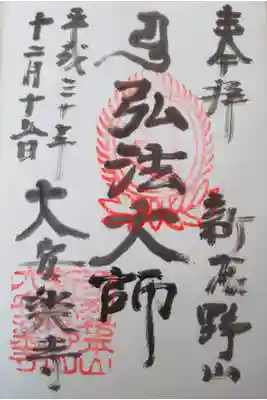 奉拝
新高野山
弘法大師
大安楽寺
平成三十年
十二月十五日